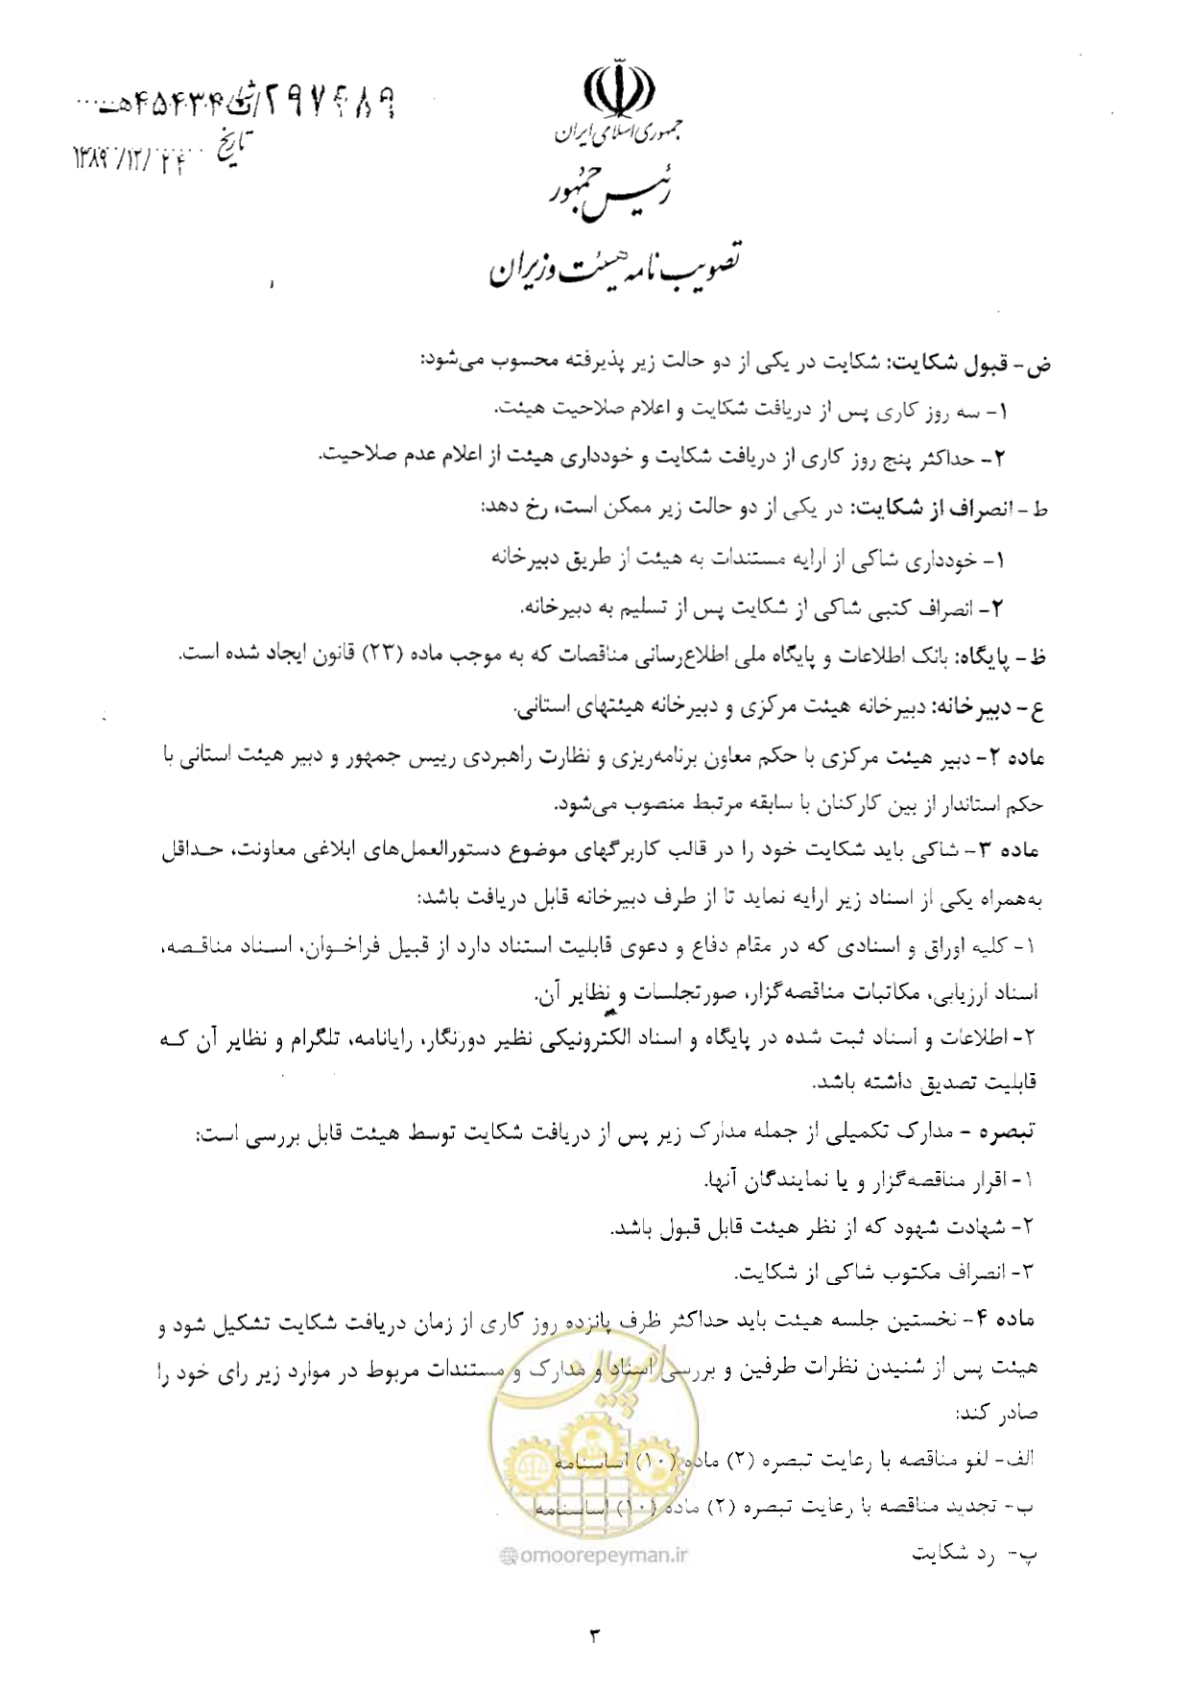 ۲۹۷۴۸۹/ت۴۵۴۳۴هـ
جمهوری اسلامی ایران
تاریخ ۱۳۸۹/۱۲/۲۴
رئیس جمهور
تصویب نامه هیئت وزیران
ض- قبول شکایت: شکایت در یکی از دو حالت زیر پذیرفته محسوب می‌شود:
۱- سه روز کاری پس از دریافت شکایت و اعلام صلاحیت هیئت.
۲- حداکثر پنج روز کاری از دریافت شکایت و خودداری هیئت از اعلام عدم صلاحیت.
ط- انصراف از شکایت: در یکی از دو حالت زیر ممکن است، رخ دهد:
۱- خودداری شاکی از ارایه مستندات به هیئت از طریق دبیرخانه
۲- انصراف کتبی شاکی از شکایت پس از تسلیم به دبیرخانه.
ظ- پایگاه: بانک اطلاعات و پایگاه ملی اطلاع‌رسانی مناقصات که به موجب ماده (۲۳) قانون ایجاد شده است.
ع- دبیرخانه: دبیرخانه هیئت مرکزی و دبیرخانه هیئتهای استانی.
ماده ۲- دبیر هیئت مرکزی با حکم معاون برنامه‌ریزی و نظارت راهبردی رییس جمهور و دبیر هیئت استانی با
حکم استاندار از بین کارکنان با سابقه مرتبط منصوب می‌شود.
ماده ۳- شاکی باید شکایت خود را در قالب کاربرگهای موضوع دستورالعمل‌های ابلاغی معاونت، حـداقل
به‌همراه یکی از اسناد زیر ارایه نماید تا از طرف دبیرخانه قابل دریافت باشد:
۱- کلیه اوراق و اسنادی که در مقام دفاع و دعوی قابلیت استناد دارد از قبیل فراخـوان، اسـناد مناقـصه،
اسناد ارزیابی، مکاتبات مناقصه‌گزار، صورتجلسات و نظایر آن.
۲- اطلاعات و اسناد ثبت شده در پایگاه و اسناد الکترونیکی نظیر دورنگار، رایانامه، تلگرام و نظایر آن کـه
قابلیت تصدیق داشته باشد.
تبصره - مدارک تکمیلی از جمله مدارک زیر پس از دریافت شکایت توسط هیئت قابل بررسی است:
۱- اقرار مناقصه‌گزار و یا نمایندگان آنها.
۲- شهادت شهود که از نظر هیئت قابل قبول باشد.
۳- انصراف مکتوب شاکی از شکایت.
ماده ۴- نخستین جلسه هیئت باید حداکثر ظرف پانزده روز کاری از زمان دریافت شکایت تشکیل شود و
هیئت پس از شنیدن نظرات طرفین و بررسی اسناد و مدارک و مستندات مربوط در موارد زیر رای خود را
صادر کند:
الف- لغو مناقصه با رعایت تبصره (۲) ماده (۱۰) اساسنامه
ب- تجدید مناقصه با رعایت تبصره (۲) ماده (۱۰) اساسنامه
پ- رد شکایت
امور پیمان
@omoorepeyman.ir
۳